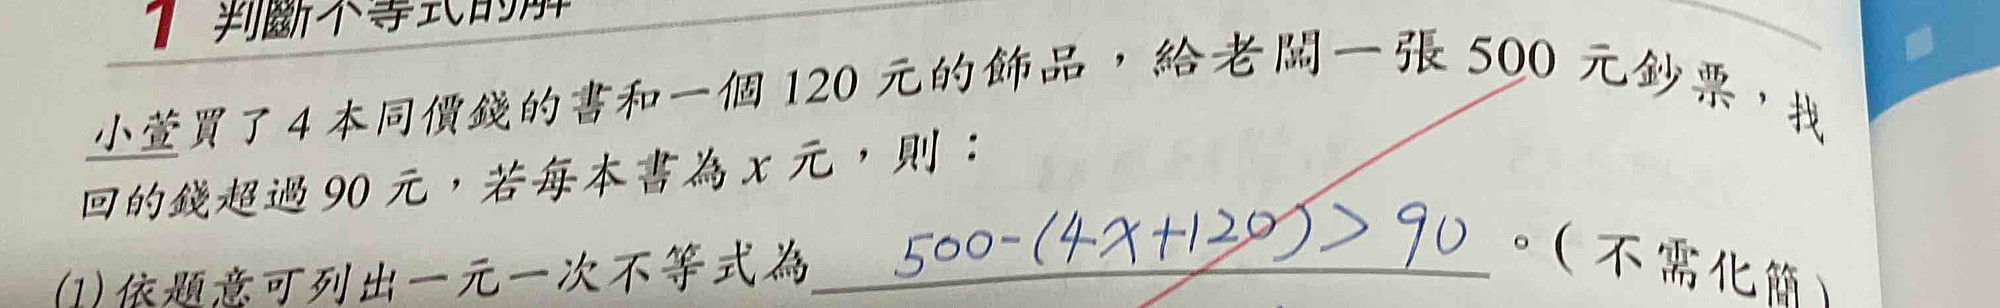 1 判斷不等式的解
小萱買了 4 本同價錢的書和一個 120 元的飾品，給老闆一張 500 元鈔票，找
回的錢超過 90 元，若每本書為 x 元，則：
(1) 依題意可列出一元一次不等式為 500-(4x+120)>90 。(不需化簡)